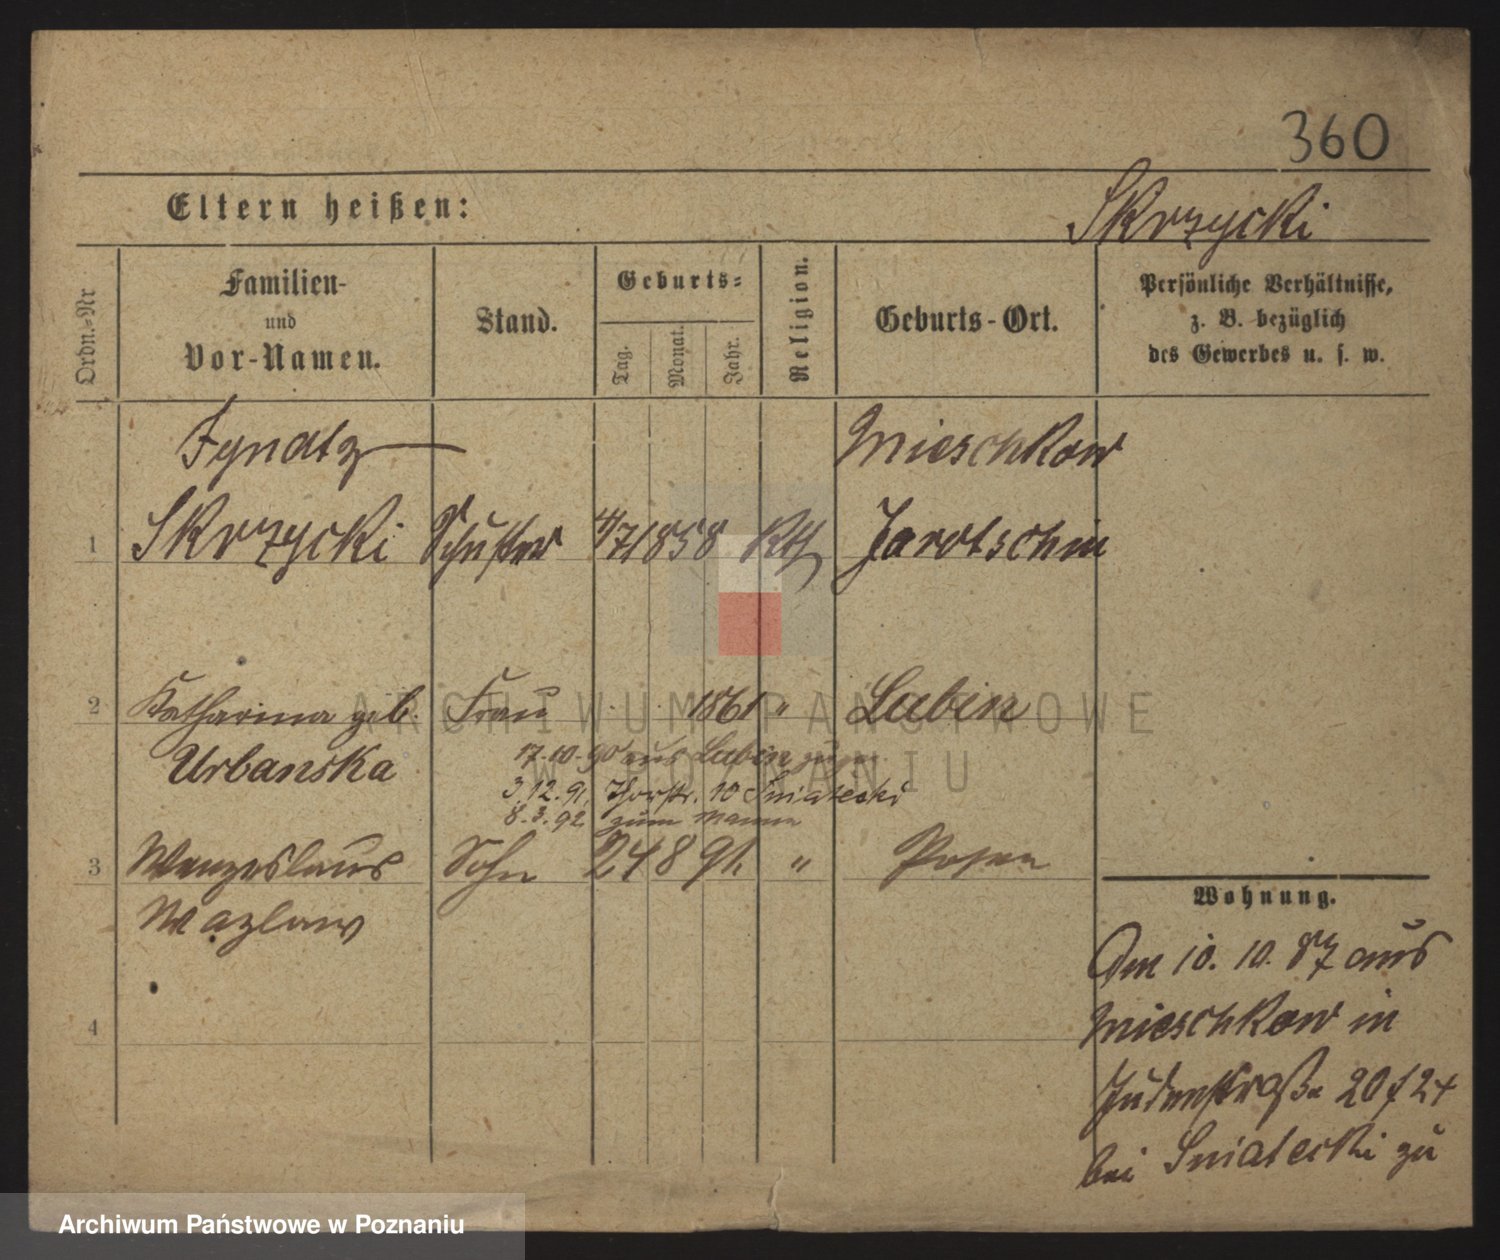 360
Eltern heißen:
Skrzycki
Ordn.-Nr
Familien-
und
Vor-Namen.
Stand.
Geburts-
Tag.
Monat.
Jahr.
Religion.
Geburts-Ort.
Persönliche Verhältnisse,
z. B. bezüglich
des Gewerbes u. s. w.
Ignatz
Mieschkow
1 Skrzycki Schuster 7 1858 Kth Jarotschin
2 Katharina geb. Frau 1861 " Lubin
Urbanska
17.10.90 aus Lubin
3.12.91. Thorstr. 10 Sniatecki
8.3.92 zum Manne
3 Wenzeslaus Sohn 24 8 91 " Posen
Wazlaw
4
Wohnung.
Am 10. 10. 87 aus
Mieschkow in
Judenstraße 20/24
bei Sniatecki zu
ARCHIWUM PAŃSTWOWE
W POZNANIU
Archiwum Państwowe w Poznaniu